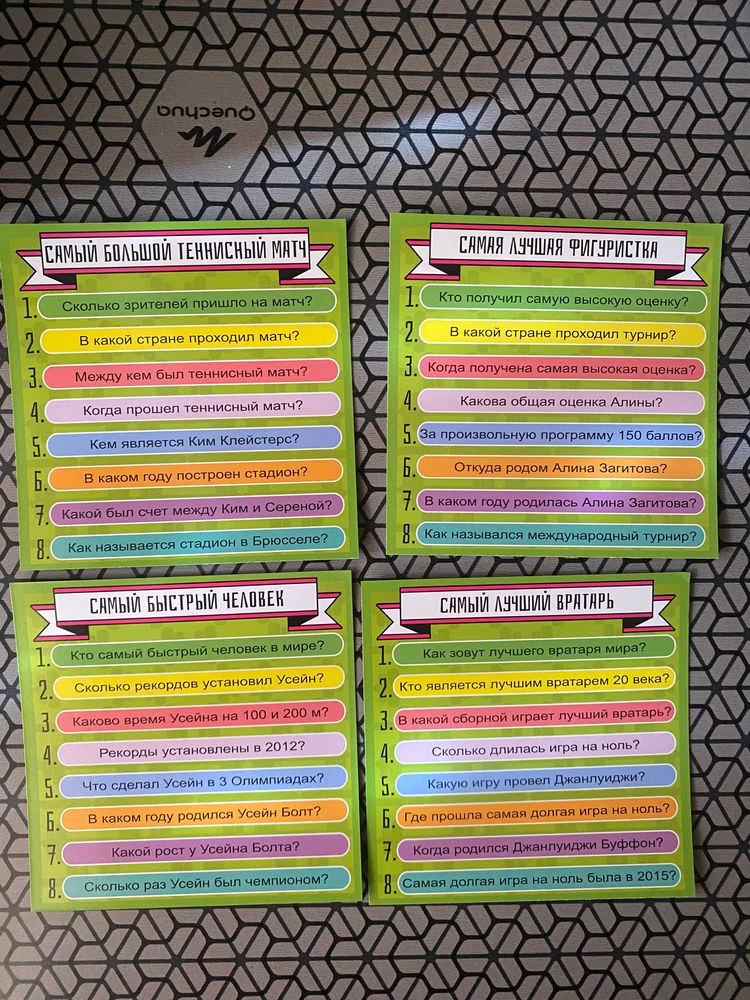 Quechua
САМЫЙ БОЛЬШОЙ ТЕННИСНЫЙ МАТЧ
1. Сколько зрителей пришло на матч?
2. В какой стране проходил матч?
3. Между кем был теннисный матч?
4. Когда прошел теннисный матч?
5. Кем является Ким Клейстерс?
6. В каком году построен стадион?
7. Какой был счет между Ким и Сереной?
8. Как называется стадион в Брюсселе?
САМАЯ ЛУЧШАЯ ФИГУРИСТКА
1. Кто получил самую высокую оценку?
2. В какой стране проходил турнир?
3. Когда получена самая высокая оценка?
4. Какова общая оценка Алины?
5. За произвольную программу 150 баллов?
6. Откуда родом Алина Загитова?
7. В каком году родилась Алина Загитова?
8. Как назывался международный турнир?
САМЫЙ БЫСТРЫЙ ЧЕЛОВЕК
1. Кто самый быстрый человек в мире?
2. Сколько рекордов установил Усейн?
3. Каково время Усейна на 100 и 200 м?
4. Рекорды установлены в 2012?
5. Что сделал Усейн в 3 Олимпиадах?
6. В каком году родился Усейн Болт?
7. Какой рост у Усейна Болта?
8. Сколько раз Усейн был чемпионом?
САМЫЙ ЛУЧШИЙ ВРАТАРЬ
1. Как зовут лучшего вратаря мира?
2. Кто является лучшим вратарем 20 века?
3. В какой сборной играет лучший вратарь?
4. Сколько длилась игра на ноль?
5. Какую игру провел Джанлуиджи?
6. Где прошла самая долгая игра на ноль?
7. Когда родился Джанлуиджи Буффон?
8. Самая долгая игра на ноль была в 2015?